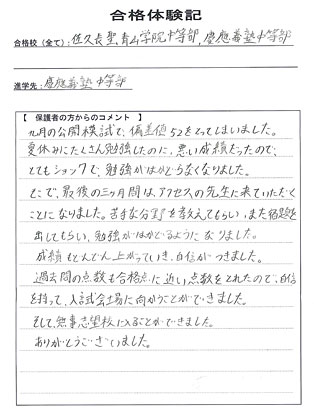 合格体験記
合格校(全て):佐久長聖,青山学院中等部,慶應義塾中等部
進学先:慶應義塾中等部
【 保護者の方からのコメント 】
九月の公開模試で、偏差値52をとってしまいました。
夏休みにたくさん勉強したのに、悪い成績だったので、
とてもショックで、勉強がはかどらなくなりました。
そこで、最後の三ヶ月間は、アクセスの先生に来ていただく
ことになりました。苦手な分野を教えてもらい、また宿題を
出してもらい、勉強がはかどるようになりました。
成績もどんどん上がっていき、自信がつきました。
過去問の点数も合格点に近い点数をとれたので、自信
を持って、入試会場に向かうことができました。
そして、無事志望校に入ることができました。
ありがとうございました。